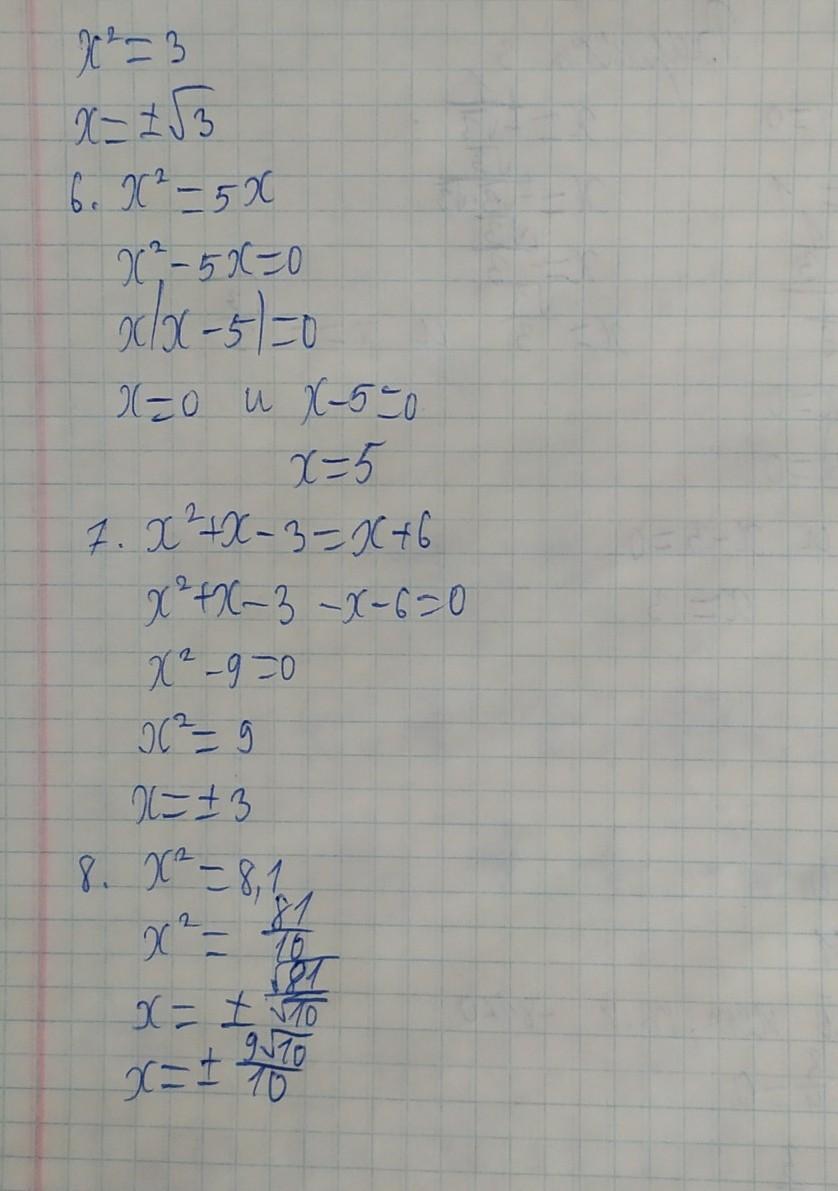 x² = 3
x = ±√3
6. x² = 5x
x² - 5x = 0
x(x - 5) = 0
x = 0 и x - 5 = 0
x = 5
7. x² + x - 3 = x + 6
x² + x - 3 - x - 6 = 0
x² - 9 = 0
x² = 9
x = ± 3
8. x² = 8,1
x² = 81/10
x = ± √81/√10
x = ± 9√10/10